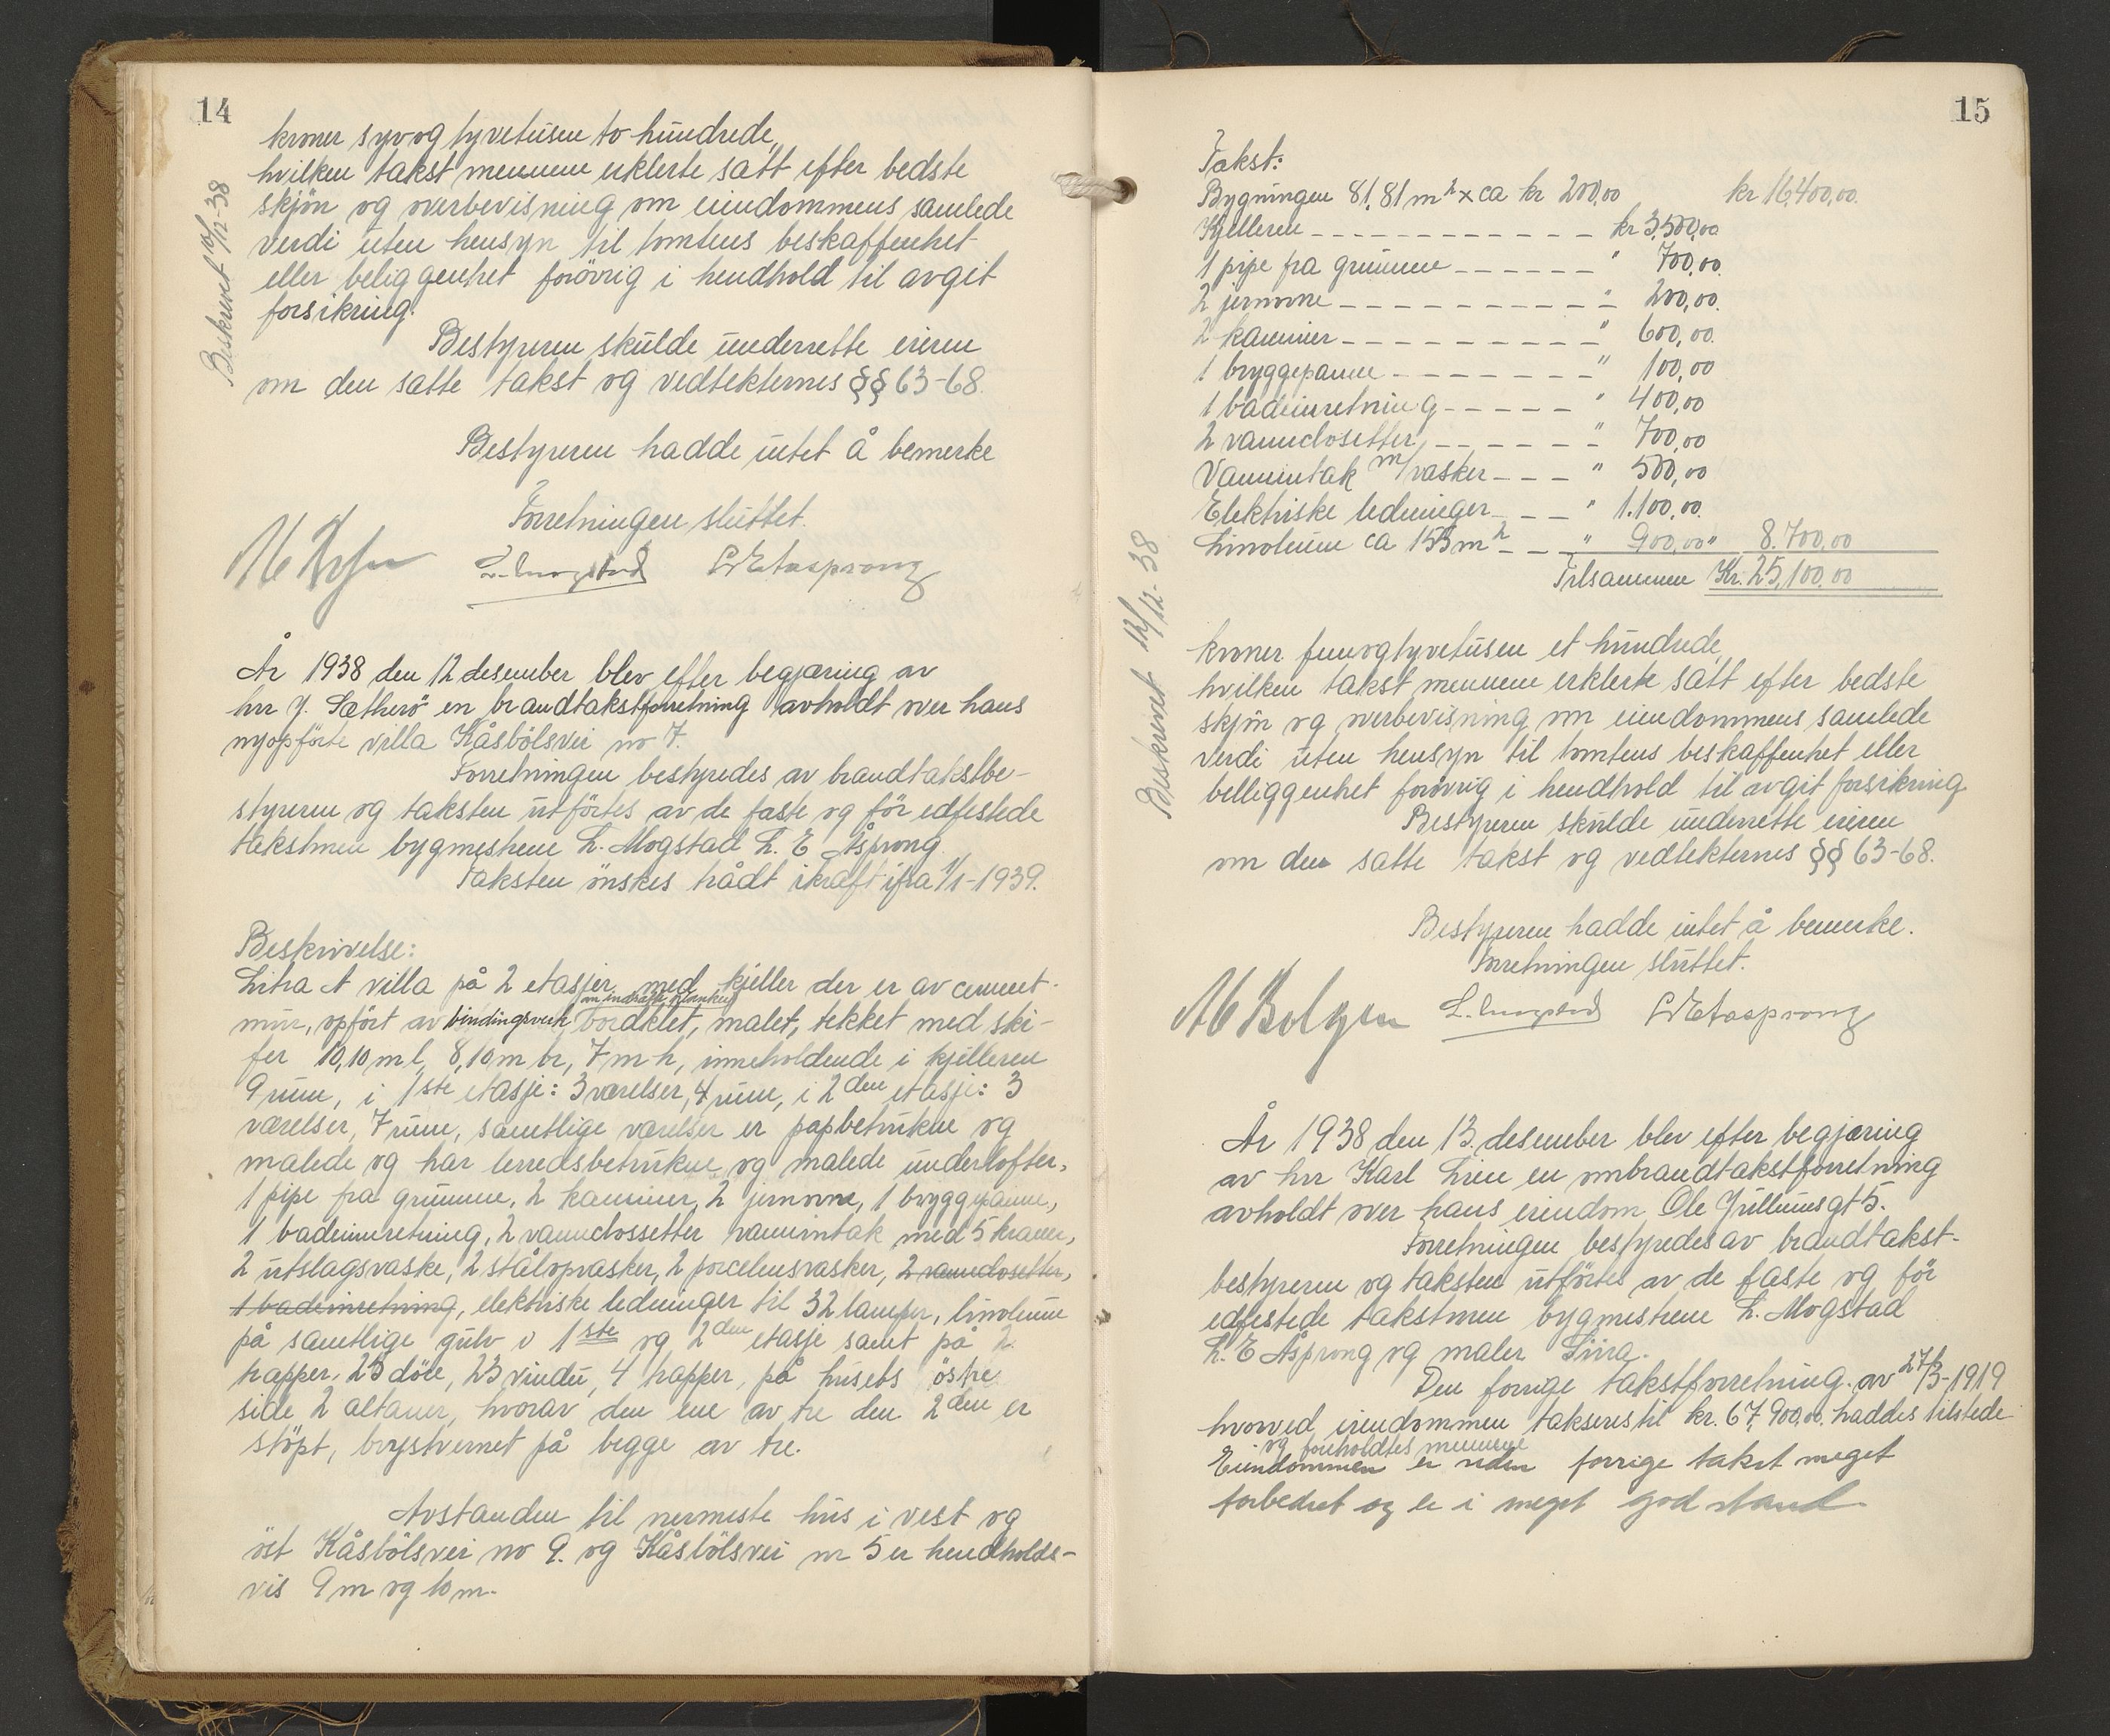 14
kroner syvogtyvetusen to hundrede,
hvilken takst mennene erklerte satt efter bedste
skjön og overbevisning om eiendommens samlede
verdi uten hensyn til tomtens beskaffenhet
eller beliggenhet forövrig i hendhold til avgit
forsikring.
Beskrevet 10/12-38
Bestyreren skulde underrette eieren
om den satte takst og vedtekternes §§ 63-68.
Bestyreren hadde intet å bemerke
Forretningen sluttet.
L. Mogstad L E Aasprong
År 1938 den 12 desember blev efter begjæring av
hrr J. Sætherö en brandtakstforretning avholdt over hans
nyopförte villa Kåsbölsvei no 7.
Forretningen bestyredes av brandtakstbe-
styreren og taksten utförtes av de faste og för edfestede
takstmen bygmestrene L. Mogstad L. E Åsprong.
Taksten önskes trådt ikraft ifra 1/1-1939.
Beskrivelse:
Litra A villa på 2 etasjer med kjeller der er av cement-
mur, opfört av bindingsverk bordklet, malet, tekket med ski-
fer 10,10 m l, 8,10 m br, 7 m h, inneholdende i kjelleren
9 rum, i 1ste etasje: 3 værelser, 4 rum, i 2den etasje: 3
værelser, 7 rum, samtlige værelser er papbetrukne og
malede og har lerredsbetrukne og malede underlofter,
1 pipe fra grunnen, 2 kaminer, 2 jernovne, 1 bryggepanne,
1 badeinnretning, 2 vannclossetter vanninntak med 5 kraner,
2 utslagsvaske, 2 stålopvasker, 2 porcelensvasker, 2 vannclosetter,
1 badeinretning, elektriske ledninger til 32 lamper, linoleum
på samtlige gulv i 1ste og 2den etasje samt på 2
trapper, 25 döre, 23 vindu, 4 trapper, på husets östre
side 2 altaner, hvorav den ene av tre den 2den er
stöpt, brystvernet på begge av tre.
Avstanden til nermeste hus i vest og
öst Kåsbölsvei no 9. og Kåsbölsvei nr 5 er hendholds-
vis 9 m og 10 m.
15
Takst:
Bygningen 81,81 m2 x ca kr 200,00 kr 16,400,00.
Kjelleren - - - - kr 3,500,00
1 pipe fra grunnen - - - - " 700,00.
2 jernovne - - - - " 200,00.
2 kaminer - - - - " 600,00.
1 bryggepanne - - - - " 100,00
1 badeinretning - - - - " 400,00
2 vannclosetter, - - - - " 700,00
Vanninntak m/vasker - - - " 500,00
Elektriske ledninger - - - " 1.100,00.
Linoleum ca 153 m2 - - " 900,00 " 8.700,00
Tilsammen Kr. 25,100,00
kroner femogtyvetusen et hundrede,
hvilken takst mennene erklerte satt efter bedste
skjön og overbevisning om eiendommens samlede
verdi uten hensyn til tomtens beskaffenhet eller
belliggenhet forövrig i hendhold til avgit forsikring
Beskrevet 12/12-38
Bestyreren skulde underrette eieren
om den satte takst og vedtekternes §§ 63-68.
Bestyreren hadde intet å bemerke.
Forretningen sluttet.
L. Mogstad L E Aasprong
År 1938 den 13. desember blev efter begjæring
av hrr Karl Lien en ombrandtakstforretning
avholdt over hans eiendom Ole Jullumsgt 5.
Forretningen bestyredes av brandtakst-
bestyreren og taksten utförtes av de faste og för
edfestede takstmen bygmestrene L. Mogstad
L. E Åsprong og maler
Den forrige takstforretning av 27/3-1919
hvorved eiendommen takseres til kr. 67,900,00. haddes tilstede
og foreholdtes mennene
Eiendommen er siden forrige takst meget
forbedret og er i meget god stand